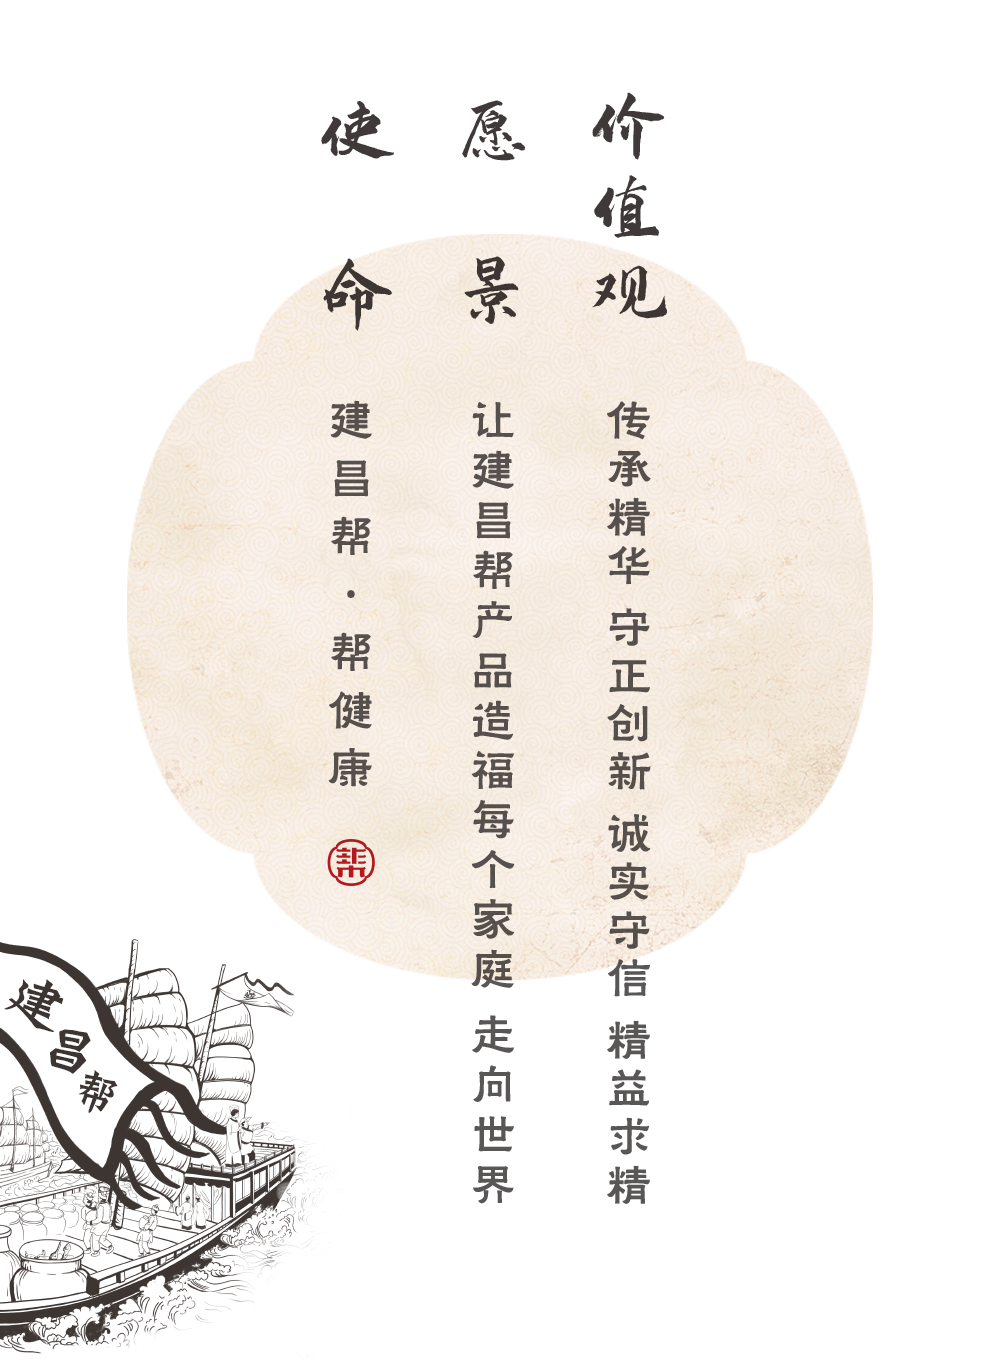 价值观
传承精华 守正创新 诚实守信 精益求精
愿景
让建昌帮产品造福每个家庭 走向世界
使命
建昌帮·帮健康
建昌帮